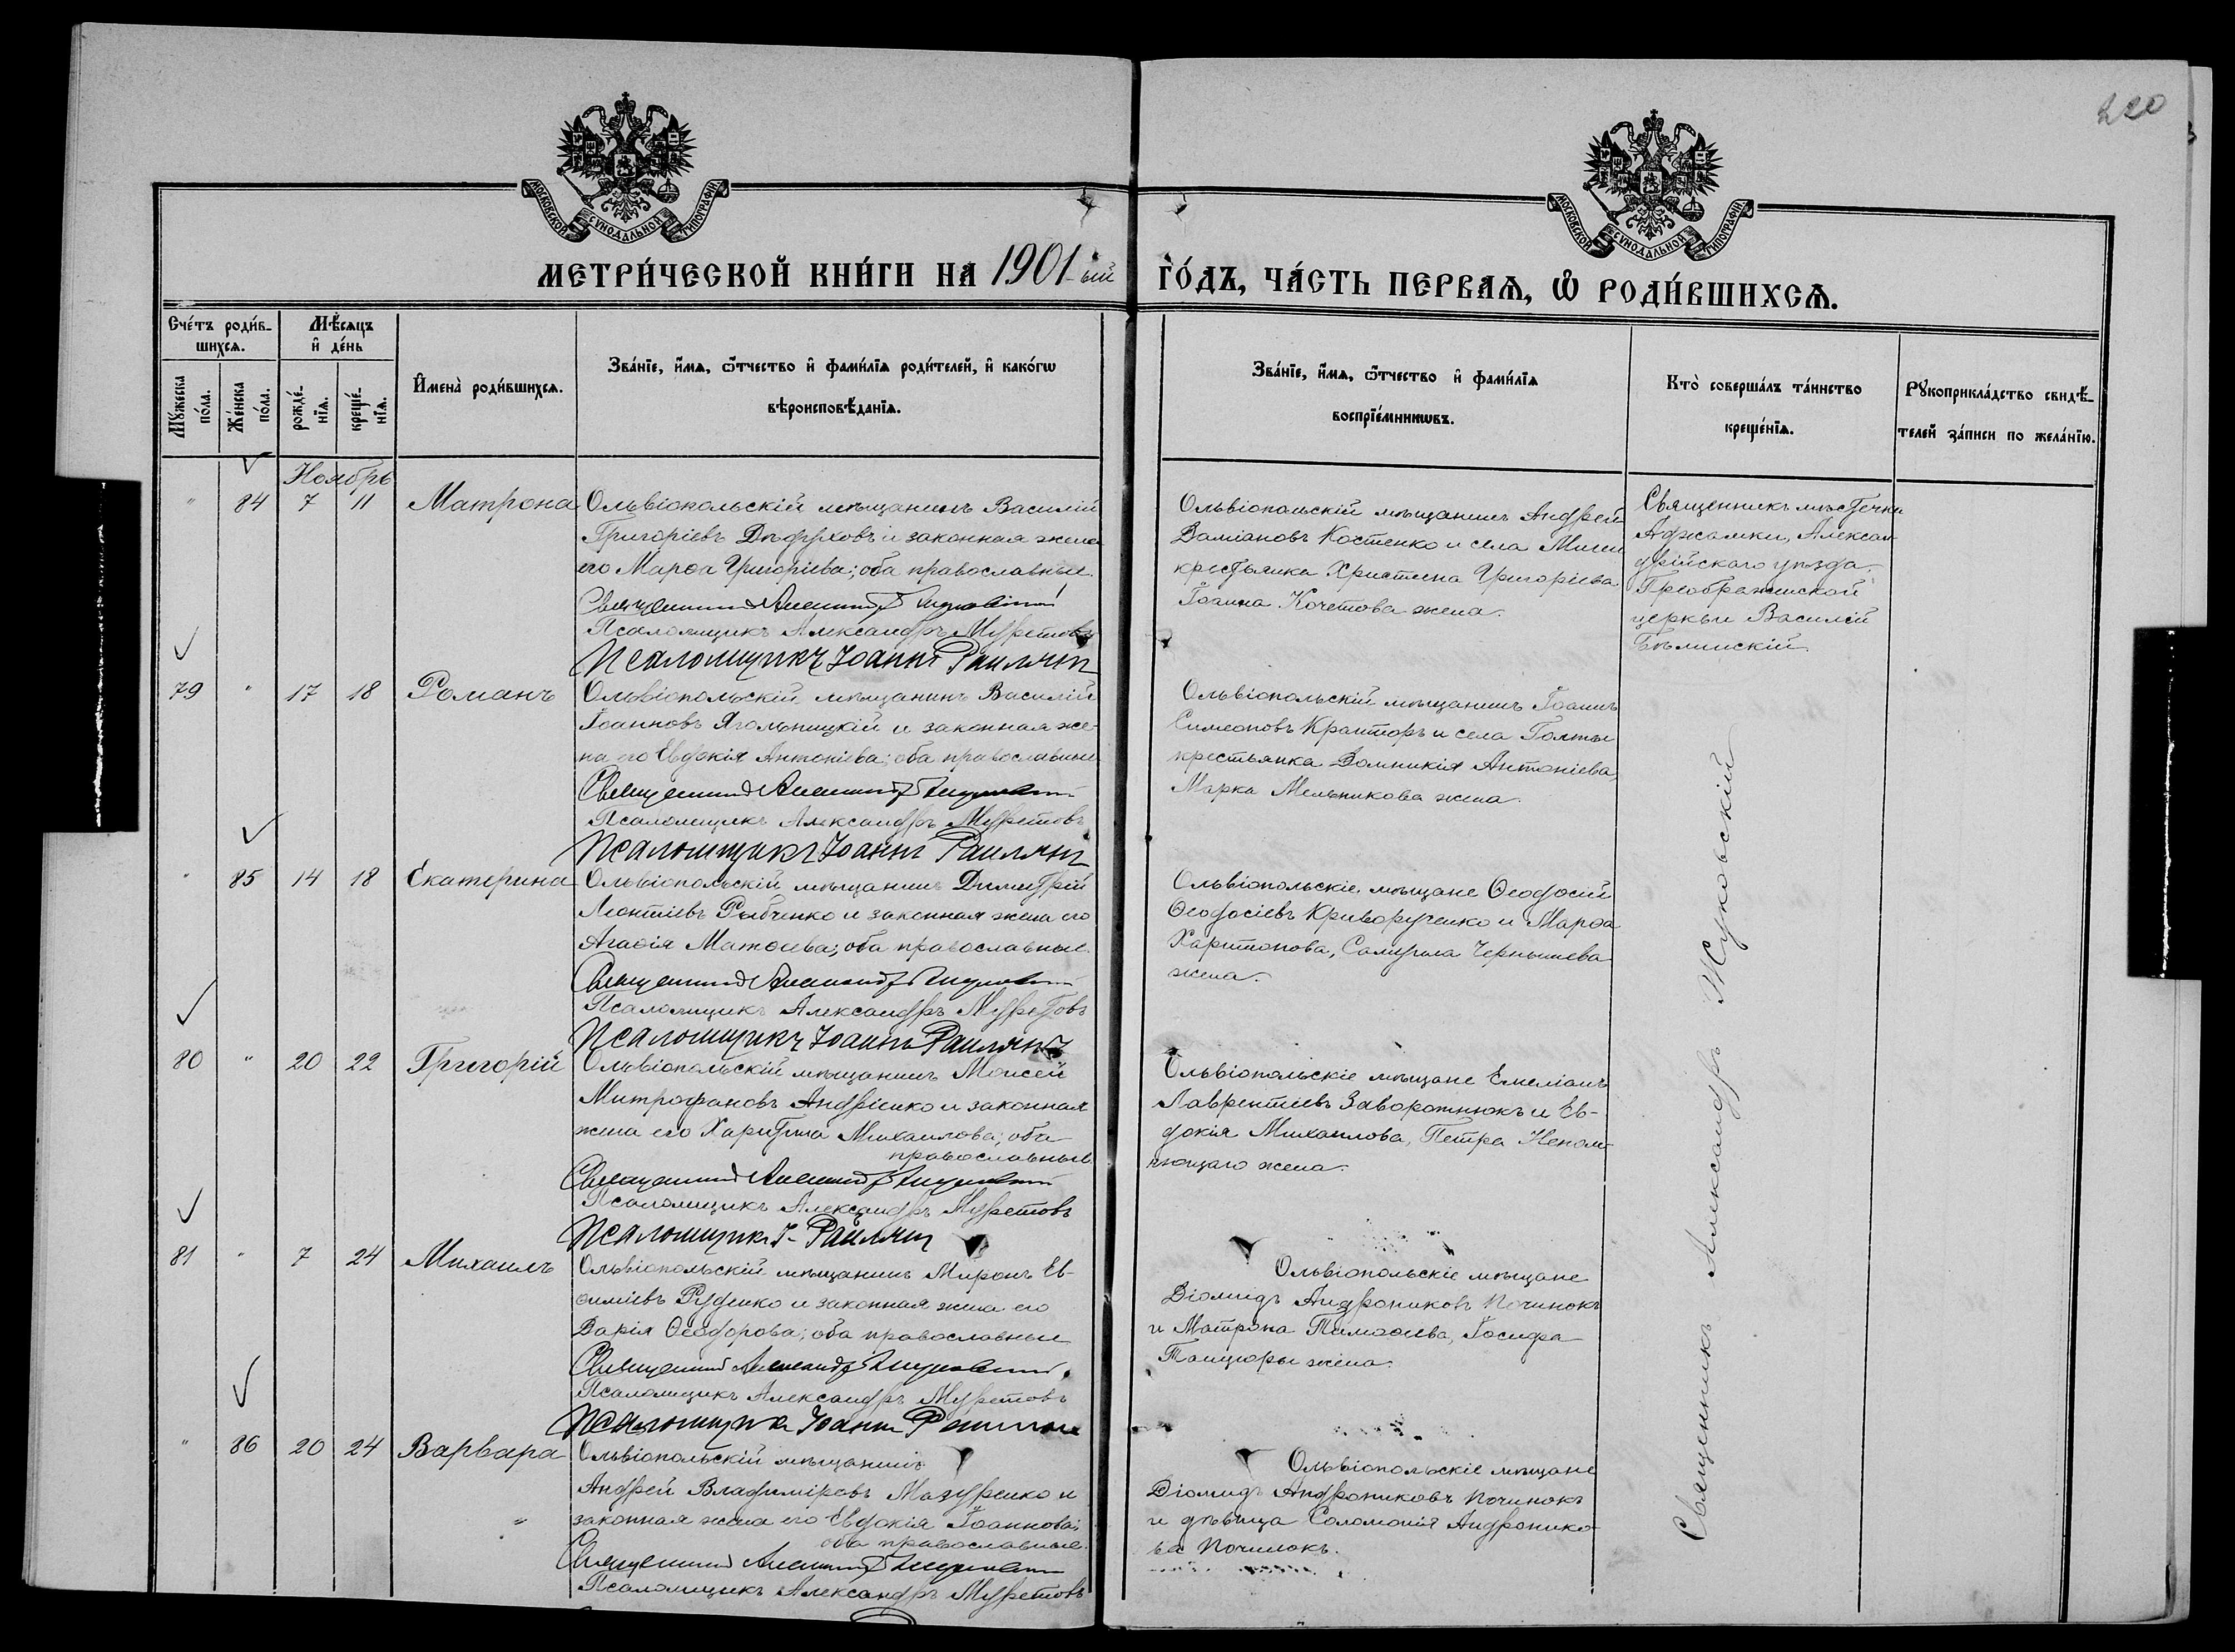 220
МОСКОВСКОЙ СѴНОДАЛЬНОЙ ТИПОГРАФІИ
МОСКОВСКОЙ СѴНОДАЛЬНОЙ ТИПОГРАФІИ
МЕТРИ́ЧЕСКОЙ КНИ́ГИ НА 1901-ый ГО́ДЪ, ЧА́СТЬ ПЕРВАѦ, Ѡ҆ РОДИ́ВШИХСѦ.
Сче́тъ роди́в-
шихсѧ.
Мѣ́сѧцъ
и҆ де́нь
Мꙋ́жеска по́ла.
Же́нска по́ла.
рожде́-
нїѧ.
креще́-
нїѧ.
И҆мена̀ роди́вшихсѧ.
Зва́нїе, и҆́мѧ, ѻ҆́тчество и҆ фами́лїѧ роди́телей, и҆ како́гѡ
вѣроисповѣ́данїѧ.
Зва́нїе, и҆́мѧ, ѻ҆́тчество и҆ фами́лїѧ
воспрїе́мникѡвъ.
Кто̀ соверша́лъ та́инство
креще́нїѧ.
Рꙋкоприкла́дство свидѣ́-
телей за́писи по жела́нїю.
Ноябрь
" 84 7 11 Матрона
Ольвіопольскій мѣщанинъ Василій
Григоріевъ Дѣдуховъ и законная жена
его Марѳа Григоріева; оба православные.
Священникъ Александръ Жуковскій
Псаломщикъ Александръ Муретовъ
Псаломщикъ Іоаннъ Раилянъ
Ольвіопольскій мѣщанинъ Андрей
Даміановъ Костенко и села Мигеи
крестьянка Христина Григоріева
Іоанна Кочетова жена.
Священникъ мѣстечка
Аджамки, Алексан-
дрійскаго уѣзда,
Преображенской
церкви Василій
Бѣлинскій
79 " 17 18 Романъ
Ольвіопольскій мѣщанинъ Василій
Іоанновъ Ягольницкій и законная же-
на его Евдокія Антоніева; оба православные
Священникъ Александръ Жуковскій
Псаломщикъ Александръ Муретовъ
Псаломщикъ Іоаннъ Раилянъ
Ольвіопольскій мѣщанинъ Іоаннъ
Симеоновъ Кранторъ и села Голты
крестьянка Домникія Антоніева,
Марка Мельникова жена.
" 85 14 18 Екатерина
Ольвіопольскій мѣщанинъ Димитрій
Леонтіевъ Рыбченко и законная жена его
Агаѳія Матѳеева; оба православные.
Священникъ Александръ Жуковскій
Псаломщикъ Александръ Муретовъ
Псаломщикъ Іоаннъ Раилянъ
Ольвіопольскіе мѣщане Ѳеодосій
Ѳеодосіевъ Криворученко и Марѳа
Харитонова, Самуила Чернышева
жена.
80 " 20 22 Григорій
Ольвіопольскій мѣщанинъ Моисей
Митрофановъ Андріенко и законная
жена его Харитина Михаилова; оба
православные
Священникъ Александръ Жуковскій
Псаломщикъ Александръ Муретовъ
Псаломщикъ І. Раилянъ
Ольвіопольскіе мѣщане Емеліанъ
Лаврентіевъ Заворотнюкъ и Ев-
докія Михаилова, Петра Непом-
нющаго жена.
81 " 7 24 Михаилъ
Ольвіопольскій мѣщанинъ Миронъ Ев-
ѳиміевъ Руденко и законная жена его
Дарія Ѳеодорова; оба православные
Священникъ Александръ Жуковскій
Псаломщикъ Александръ Муретовъ
Псаломщикъ Іоаннъ Раилянъ
Ольвіопольскіе мѣщане
Діомидъ Андрониковъ Починокъ
и Матрона Тимоѳеева, Іосифа
Танцюры жена.
" 86 20 24 Варвара
Ольвіопольскій мѣщанинъ
Андрей Владиміровъ Мазуренко и
законная жена его Евдокія Іоаннова;
оба православные.
Священникъ Александръ Жуковскій
Псаломщикъ Александръ Муретовъ
Ольвіопольскіе мѣщане
Діомидъ Андрониковъ Починокъ
и дѣвица Соломонія Андронико-
ва Починокъ.
Священникъ Александръ Жуковскій